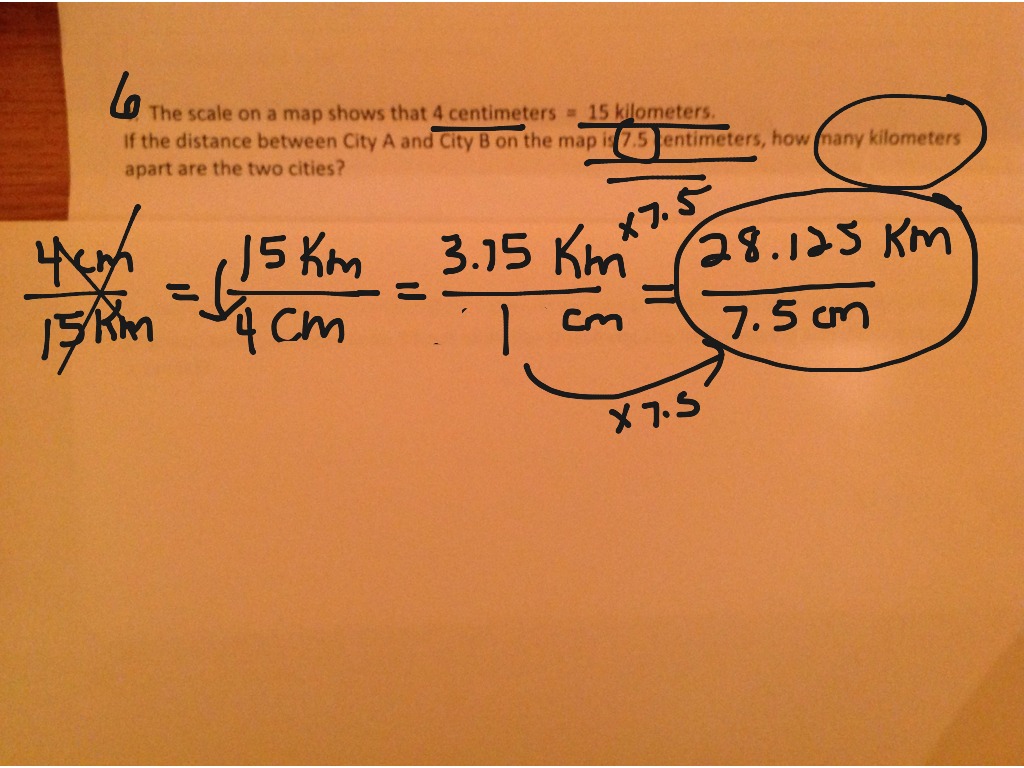 6. The scale on a map shows that 4 centimeters = 15 kilometers.
If the distance between City A and City B on the map is 7.5 centimeters, how many kilometers
apart are the two cities?
x7.5
4 cm = 15 Km = 3.75 Km = 28.125 Km
15 Km 4 cm 1 cm 7.5 cm
x7.5